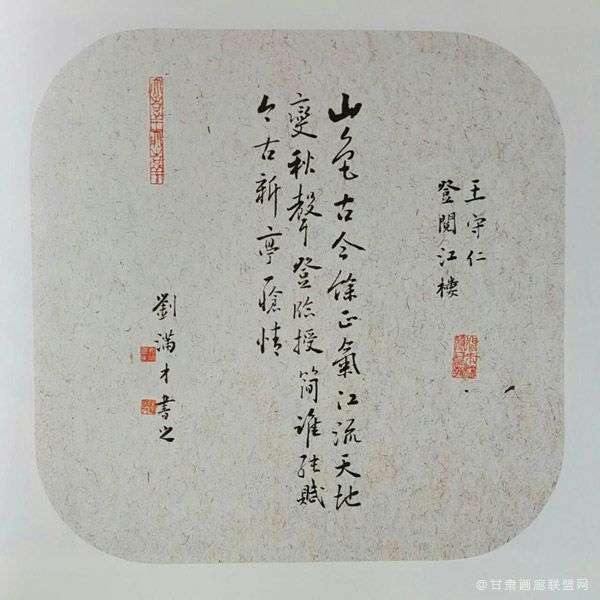 王守仁
登閱江樓
山色古今餘正氣江流天地
變秋聲登臨授簡誰能賦
千古新亭一愴情
劉滿才書之
@甘肃画廊联盟网